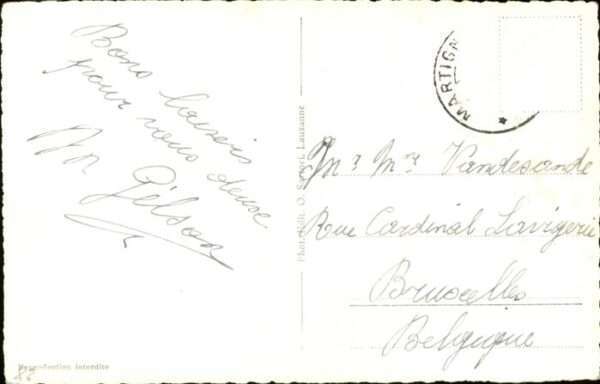 Bons baisers
pour vous deux
M Gilson
Photo-édit. O. Sartori, Lausanne
MARTIGN
Mr Mme Vandesande
Rue Cardinal Lavigerie
Bruxelles
Belgique
Reproduction interdite